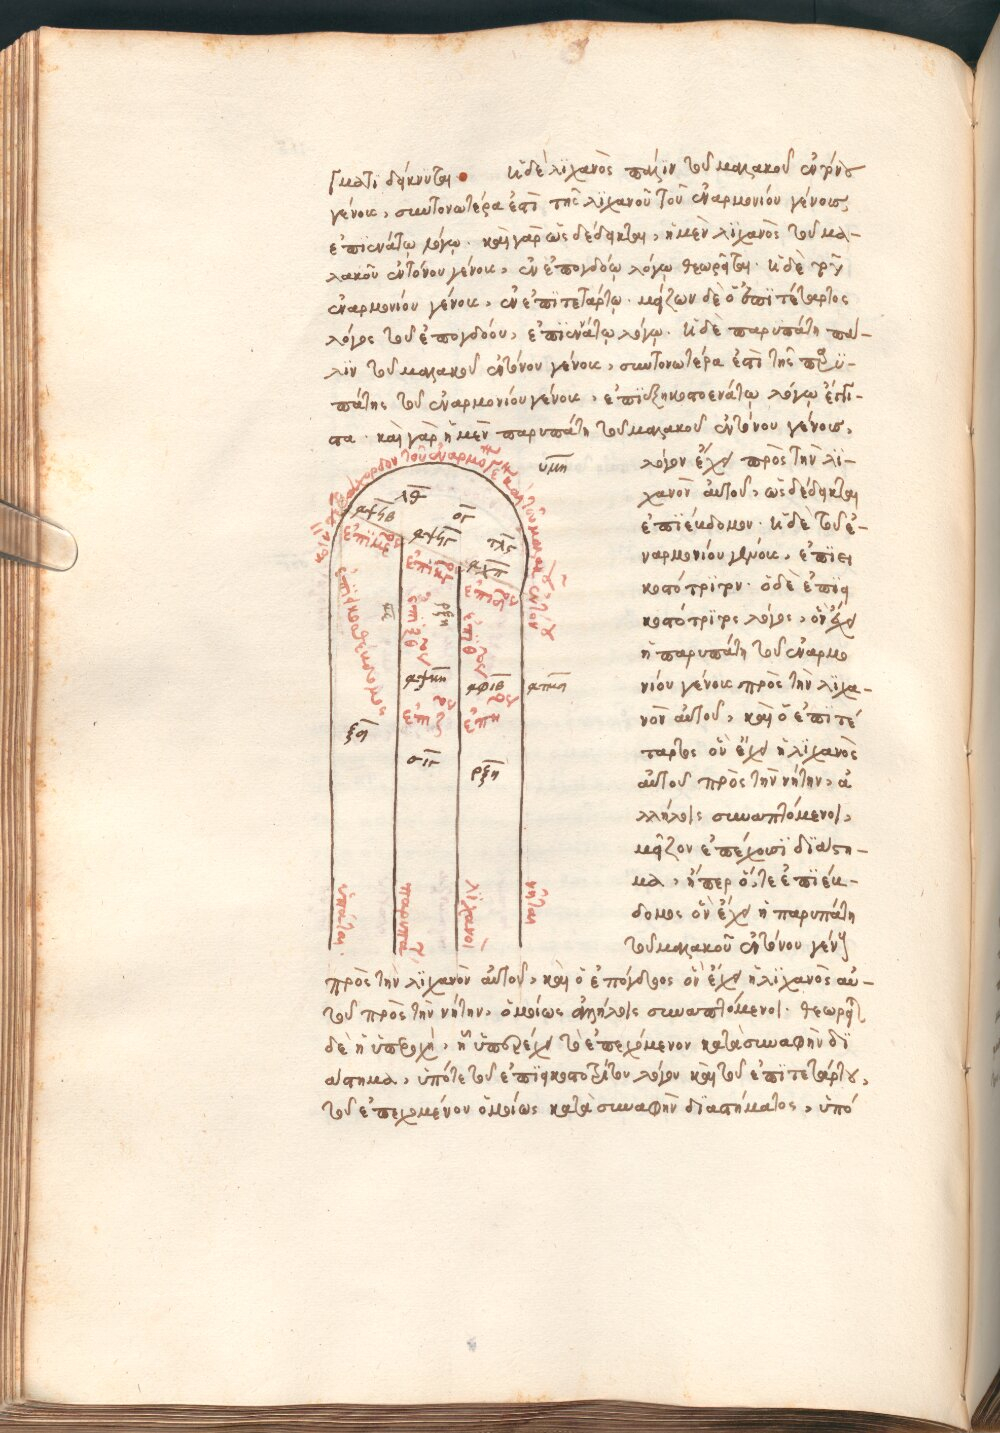 γματι δείκνυται. ἡ δὲ λιχανὸς πάλιν τοῦ μαλακοῦ ἐντόνου
γένους, συντονωτέρα ἐστὶ τῆς λιχανοῦ τοῦ ἐναρμονίου γένους
ἐπιεννάτῳ λόγῳ. καὶ γὰρ ὡς δέδεικται, ἡ μὲν λιχανὸς τοῦ μα-
λακοῦ ἐντόνου γένους, ἐν ἐπογδόῳ λόγῳ θεωρεῖται. ἡ δὲ τοῦ
ἐναρμονίου γένους, ἐν ἐπιτετάρτῳ. μείζων δὲ ὁ ἐπιτέταρτος
λόγος τοῦ ἐπογδόου, ἐπιεννάτῳ λόγῳ. ἡ δὲ παρυπάτη πά-
λιν τοῦ μαλακοῦ ἐντόνου γένους, συντονωτέρα ἐστὶ τῆς παρυ-
πάτης τοῦ ἐναρμονίου γένους, ἐπιεξηκοστοενάτῳ λόγῳ
καὶ γὰρ ἡ μὲν παρυπάτη τοῦ μαλακοῦ ἐντόνου γένους,
λόγον ἔχει πρὸς τὴν λι-
χανὸν αὐτοῦ, ὡς δέδεικται
ἐπιέκδομον. ἡ δὲ τοῦ ἐ-
ναρμονίου γένους, ἐπιει
κοστότριτον. ὁ δὲ ἐπιει
κοστότριτος λόγος, ὃν ἔχει
ἡ παρυπάτη τοῦ ἐναρμο
νίου γένους πρὸς τὴν λιχα-
νὸν αὐτοῦ, καὶ ὁ ἐπιτέ
ταρτος ὃν ἔχει ἡ λιχανὸς
αὐτοῦ πρὸς τὴν νήτην, ἀ
λλήλοις συναπτόμενοι,
μεῖζον ἐπέχουσι διάστη-
μα, ἤπερ ὅ, τε ἐπιέκ-
δομος ὃν ἔχει ἡ παρυπάτη
τοῦ μαλακοῦ ἐντόνου γένους
πρὸς τὴν λιχανὸν αὐτοῦ, καὶ ὁ ἐπόγδοος ὃν ἔχει ἡ λιχανὸς αὐ-
τοῦ πρὸς τὴν νήτην, ὁμοίως ἀλλήλοις συναπτόμενοι. θεωρεῖται
δὲ ἡ ὑπεροχὴ, ἣν ὑπερέχει τὸ ἐπεχόμενον κατὰ συναφὴν δι
άστημα, ὑπό τε τοῦ ἐπιεικοστοτρίτου λόγου καὶ τοῦ ἐπιτετάρτου,
τοῦ ἐπεχομένου ὁμοίως κατὰ συναφὴν διαστήματος, ὑπό
υμη
λθ
αψϟβ
ογ
αψϟγ
τλϛ
αχπ
αψκη
αφιβ
σιϛ
ρξη
ὑπάται
παρυπά
λιχανοί
νῆται